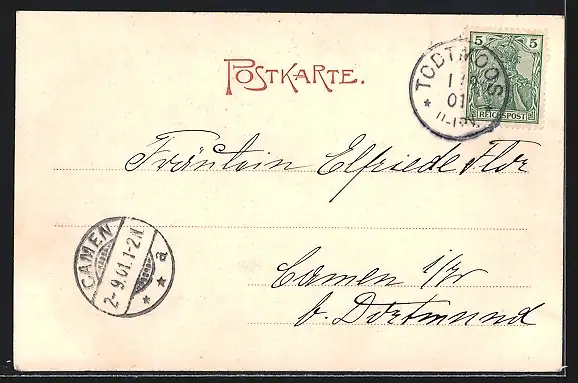 POSTKARTE.
5 5
REICHSPOST
TODTMOOS
01
11-12V.
Fräulein Elfriede Flor
Camen i/W
b. Dortmund
CAMEN
2-9.01.1-2.N
* * a